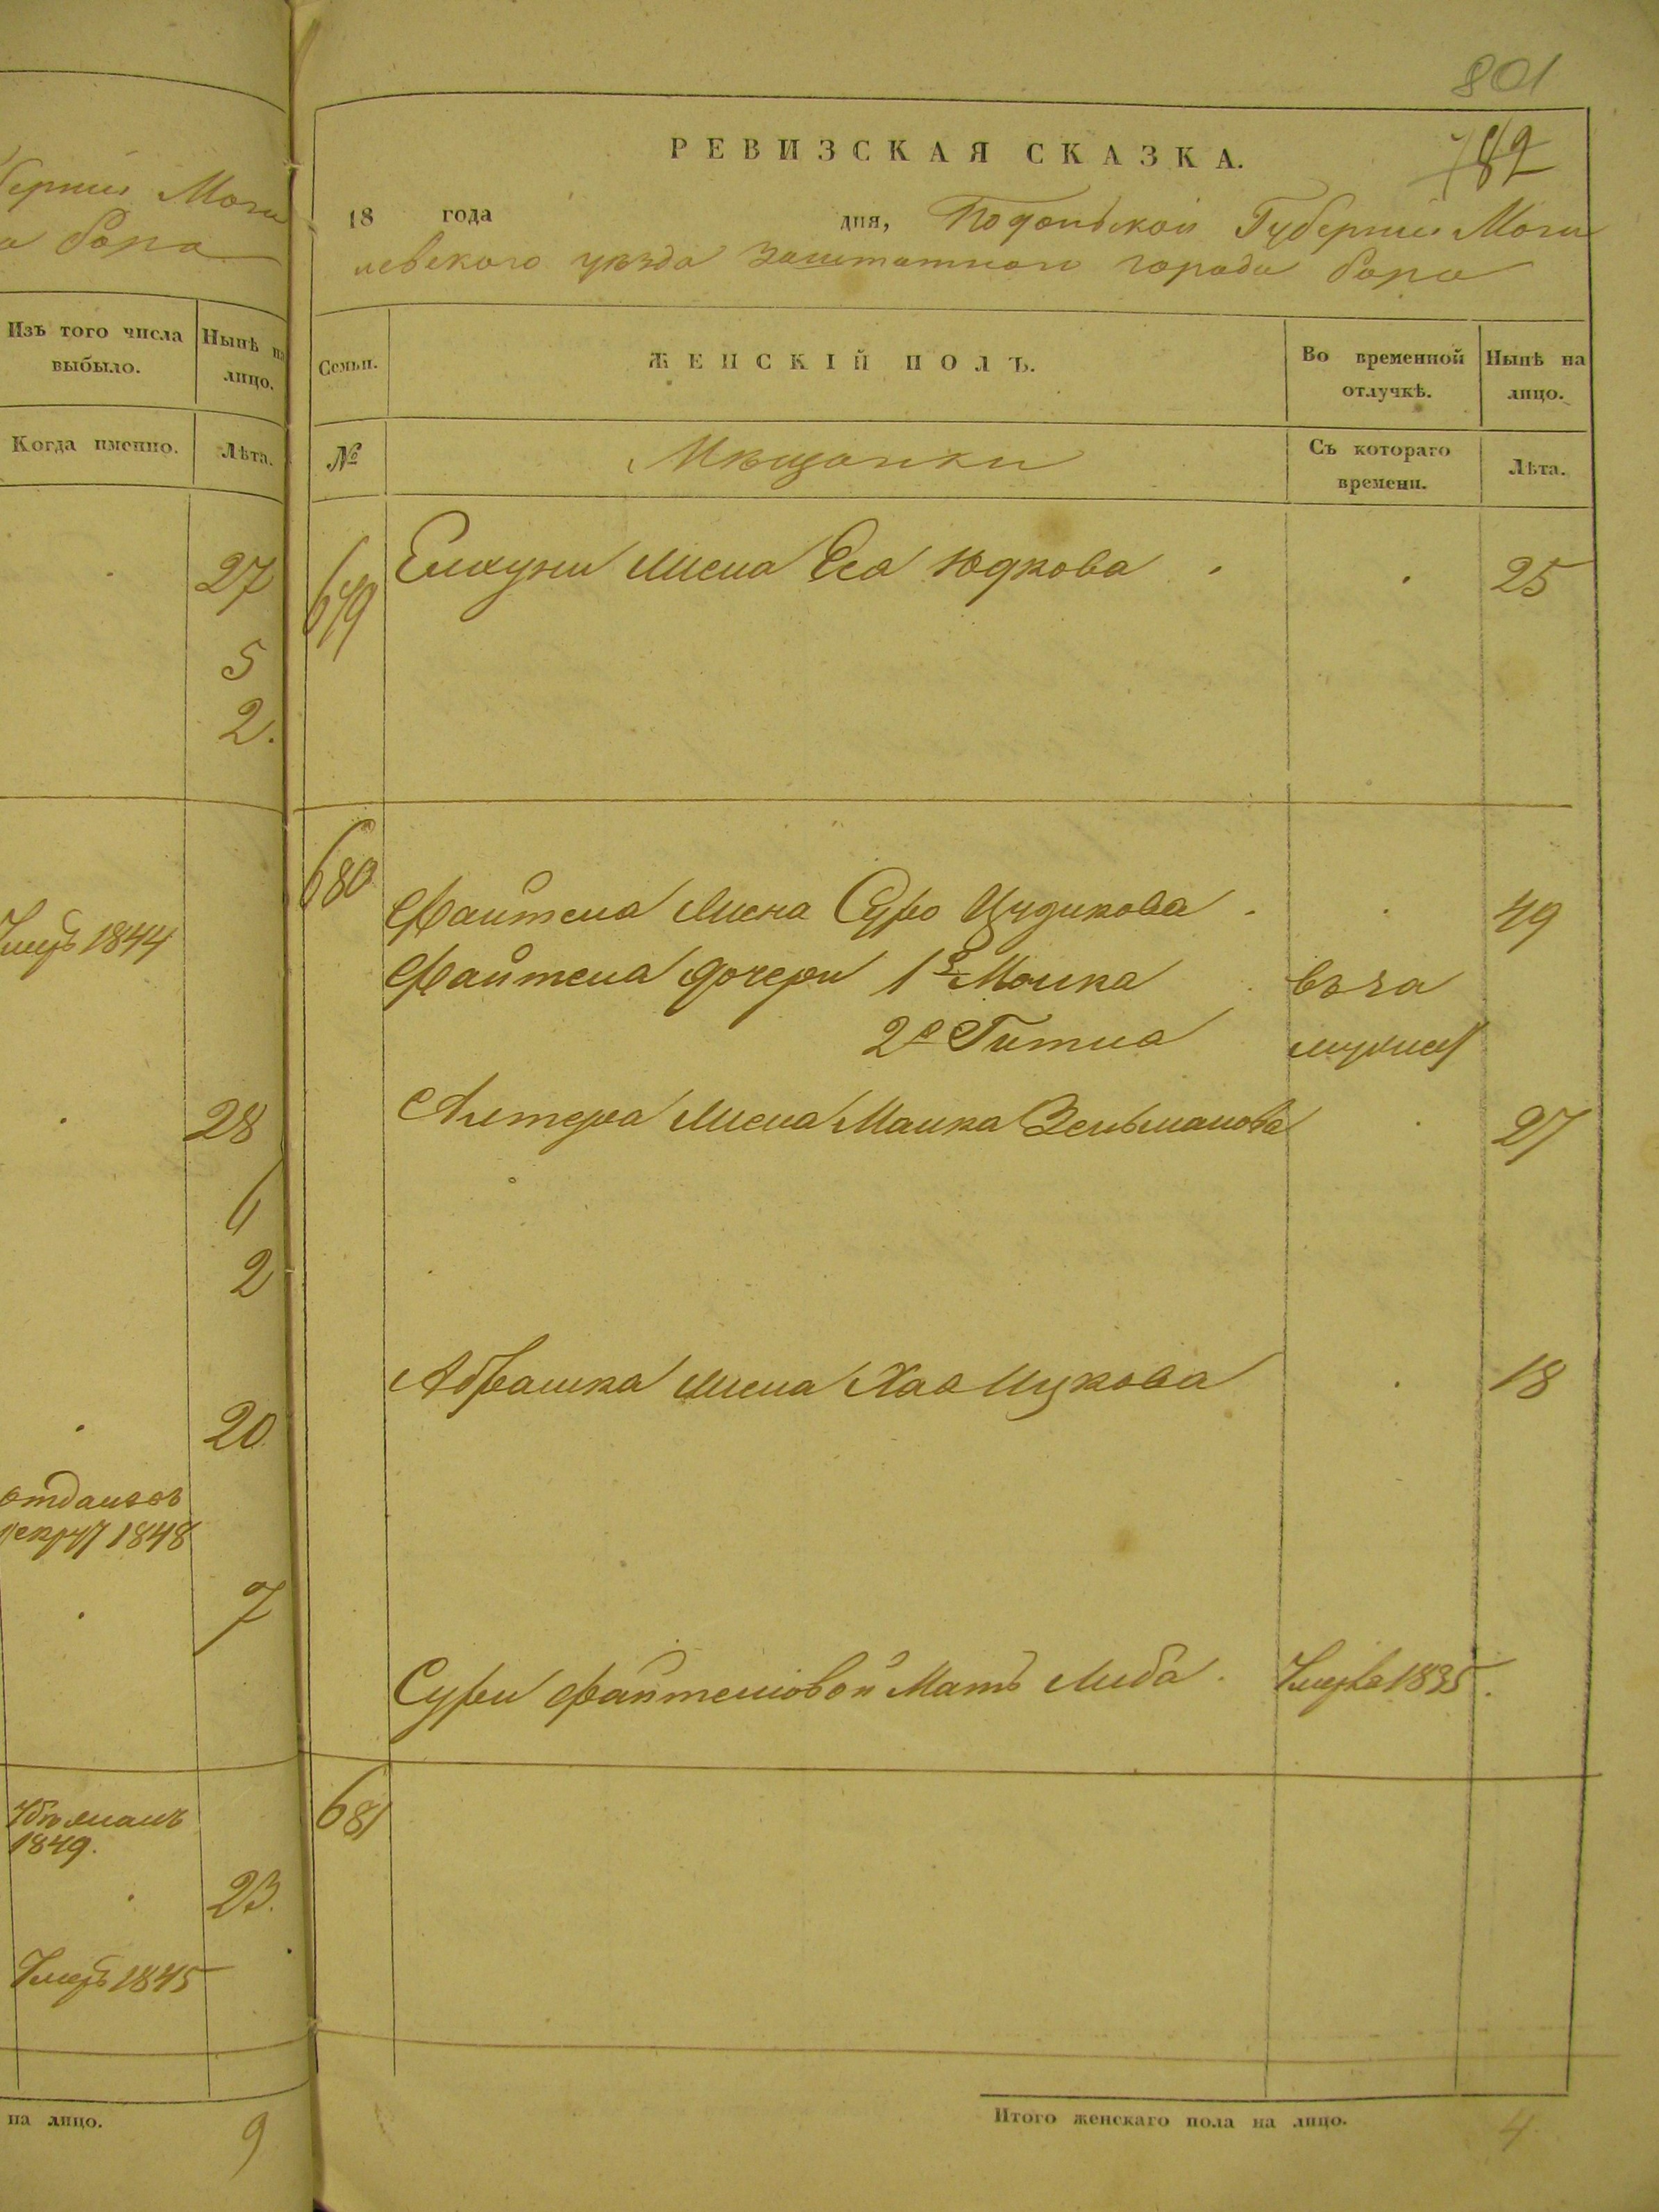 берніи Моги
а бара
Изъ того числа выбыло.
Нынѣ на лицо.
Когда именно.
Лѣта.
27
5
2.
Умеръ 1844
28
6
2
20
отданъ въ
рекруты 1848
7
1849.
23.
Умеръ 1845
на лицо.
9
801
782
РЕВИЗСКАЯ СКАЗКА.
18 года дня, Подольской Губерніи Моги
левского уѣзда Заштатного города бара
Семьи.
ЖЕНСКІЙ ПОЛЪ.
Во временной отлучкѣ.
Нынѣ на лицо.
№
Мѣщанки
Съ котораго времени.
Лѣта.
679
жена Еса Юдкова
25
680
Файтеля жена Сура Цудикова
49
Файтеля дочери 1я Малка
въ за
2я Гитля
мужии
Алтера жена Малка Зельманова
27
Абрашка жена Хая Ицкова
18
Суры Файтелювой Мать Либа
Умерла 1835.
681
Итого женскаго пола на лицо.
4